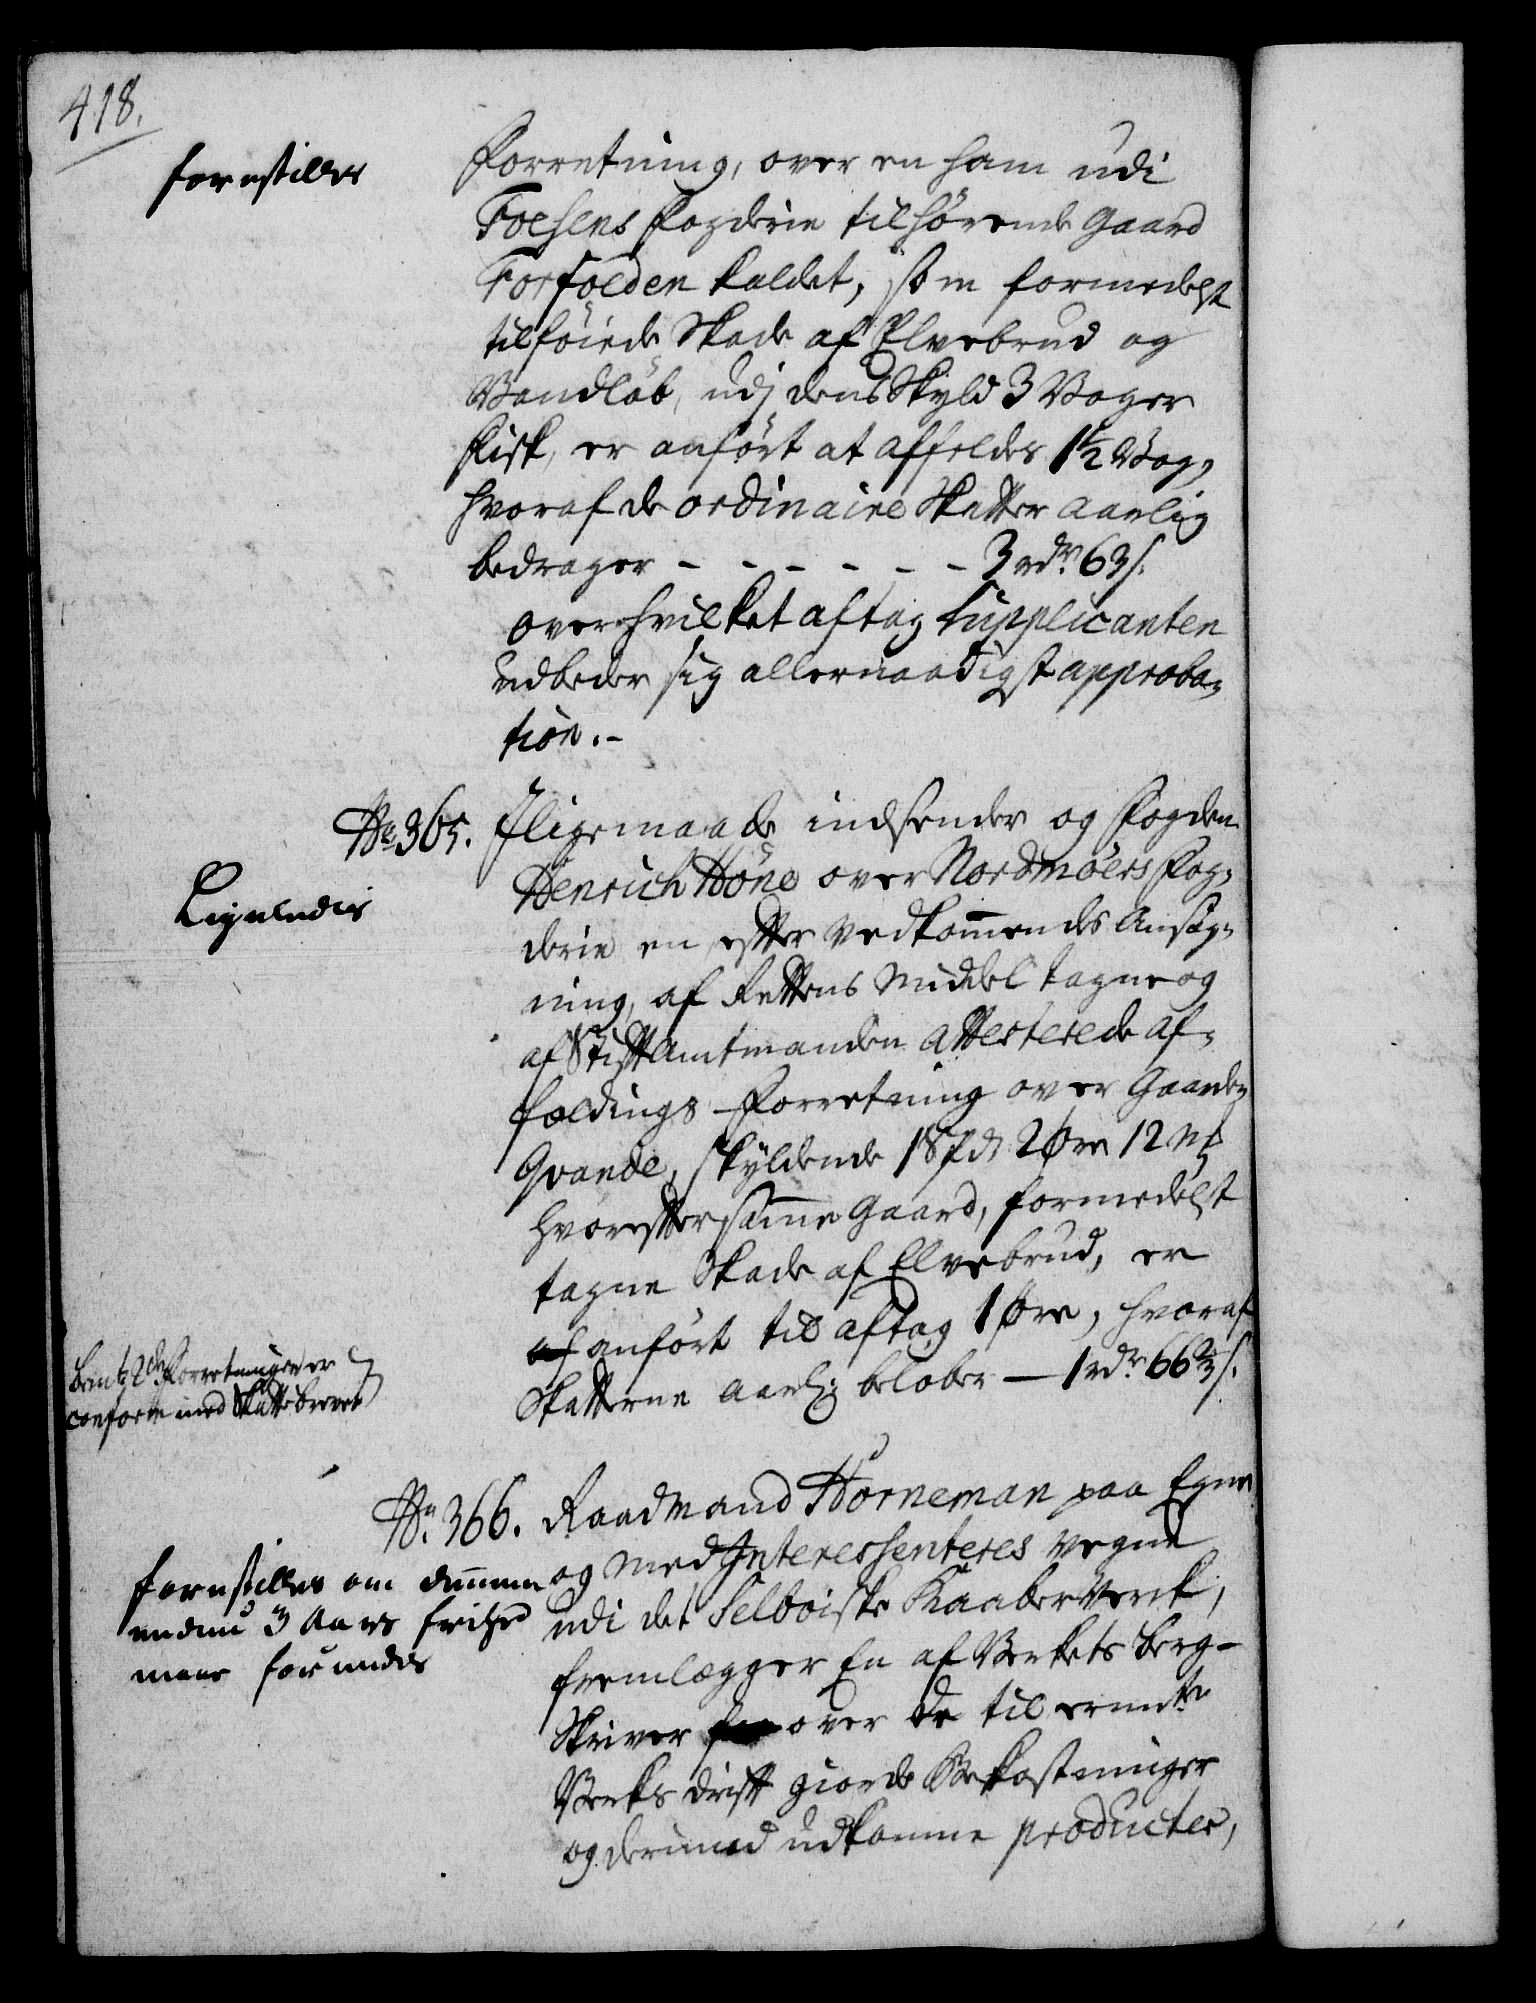 418.
forestilles
Forretning, over en ham udi
Foesens Fogderie tilhörende Gaard
Forfolden kaldet, som formedelst
tilföiede Skade af Elvebrud og
Vandløb, udj dens Skyld 3 Voger
Fisk, er anført at affeldes 1½ Vog,
hvoraf de ordinaire Skatter aarlig
bedrager - - - - - - 3 rdr. 63 s.
over hvilket aftag Supplicanten
udbeder sig allernaadigst approba-
tion.-
No. 365. Jligemaade indsender og Fogden
Henrich Höne over Nordmöers Fog-
Lignendis
derie en, efter vedkommendes Ansøg-
ning, af Rettens Middel tagne og
af Stiftamtmanden Attesterede af-
fældings-Forretning over Gaarden
Qvande, skyldende 1 Spd 2 Øre 12 mk
hvorefter samme Gaard, formedelst
tagne Skade af Elvebrud, er
anført til aftag 1 Øre, hvoraf
Skatterne aarlig beløber — 1 rdr. 66 2/3 s.
bemte 2de Forretninger er
conform med Skatte brevet
No. 366. Raadmand Horneman paa Egne
og Med Interessenteres vegne
udi det Selboiske Kaaber Verk,
fremlægger En af Verkets Berg-
Skriver over de til ermte
Verks drift giorde Bekostninger
og derimod udkomne producter,
forestilles om dennem
endnu 3 Aars frihed
maae forundes